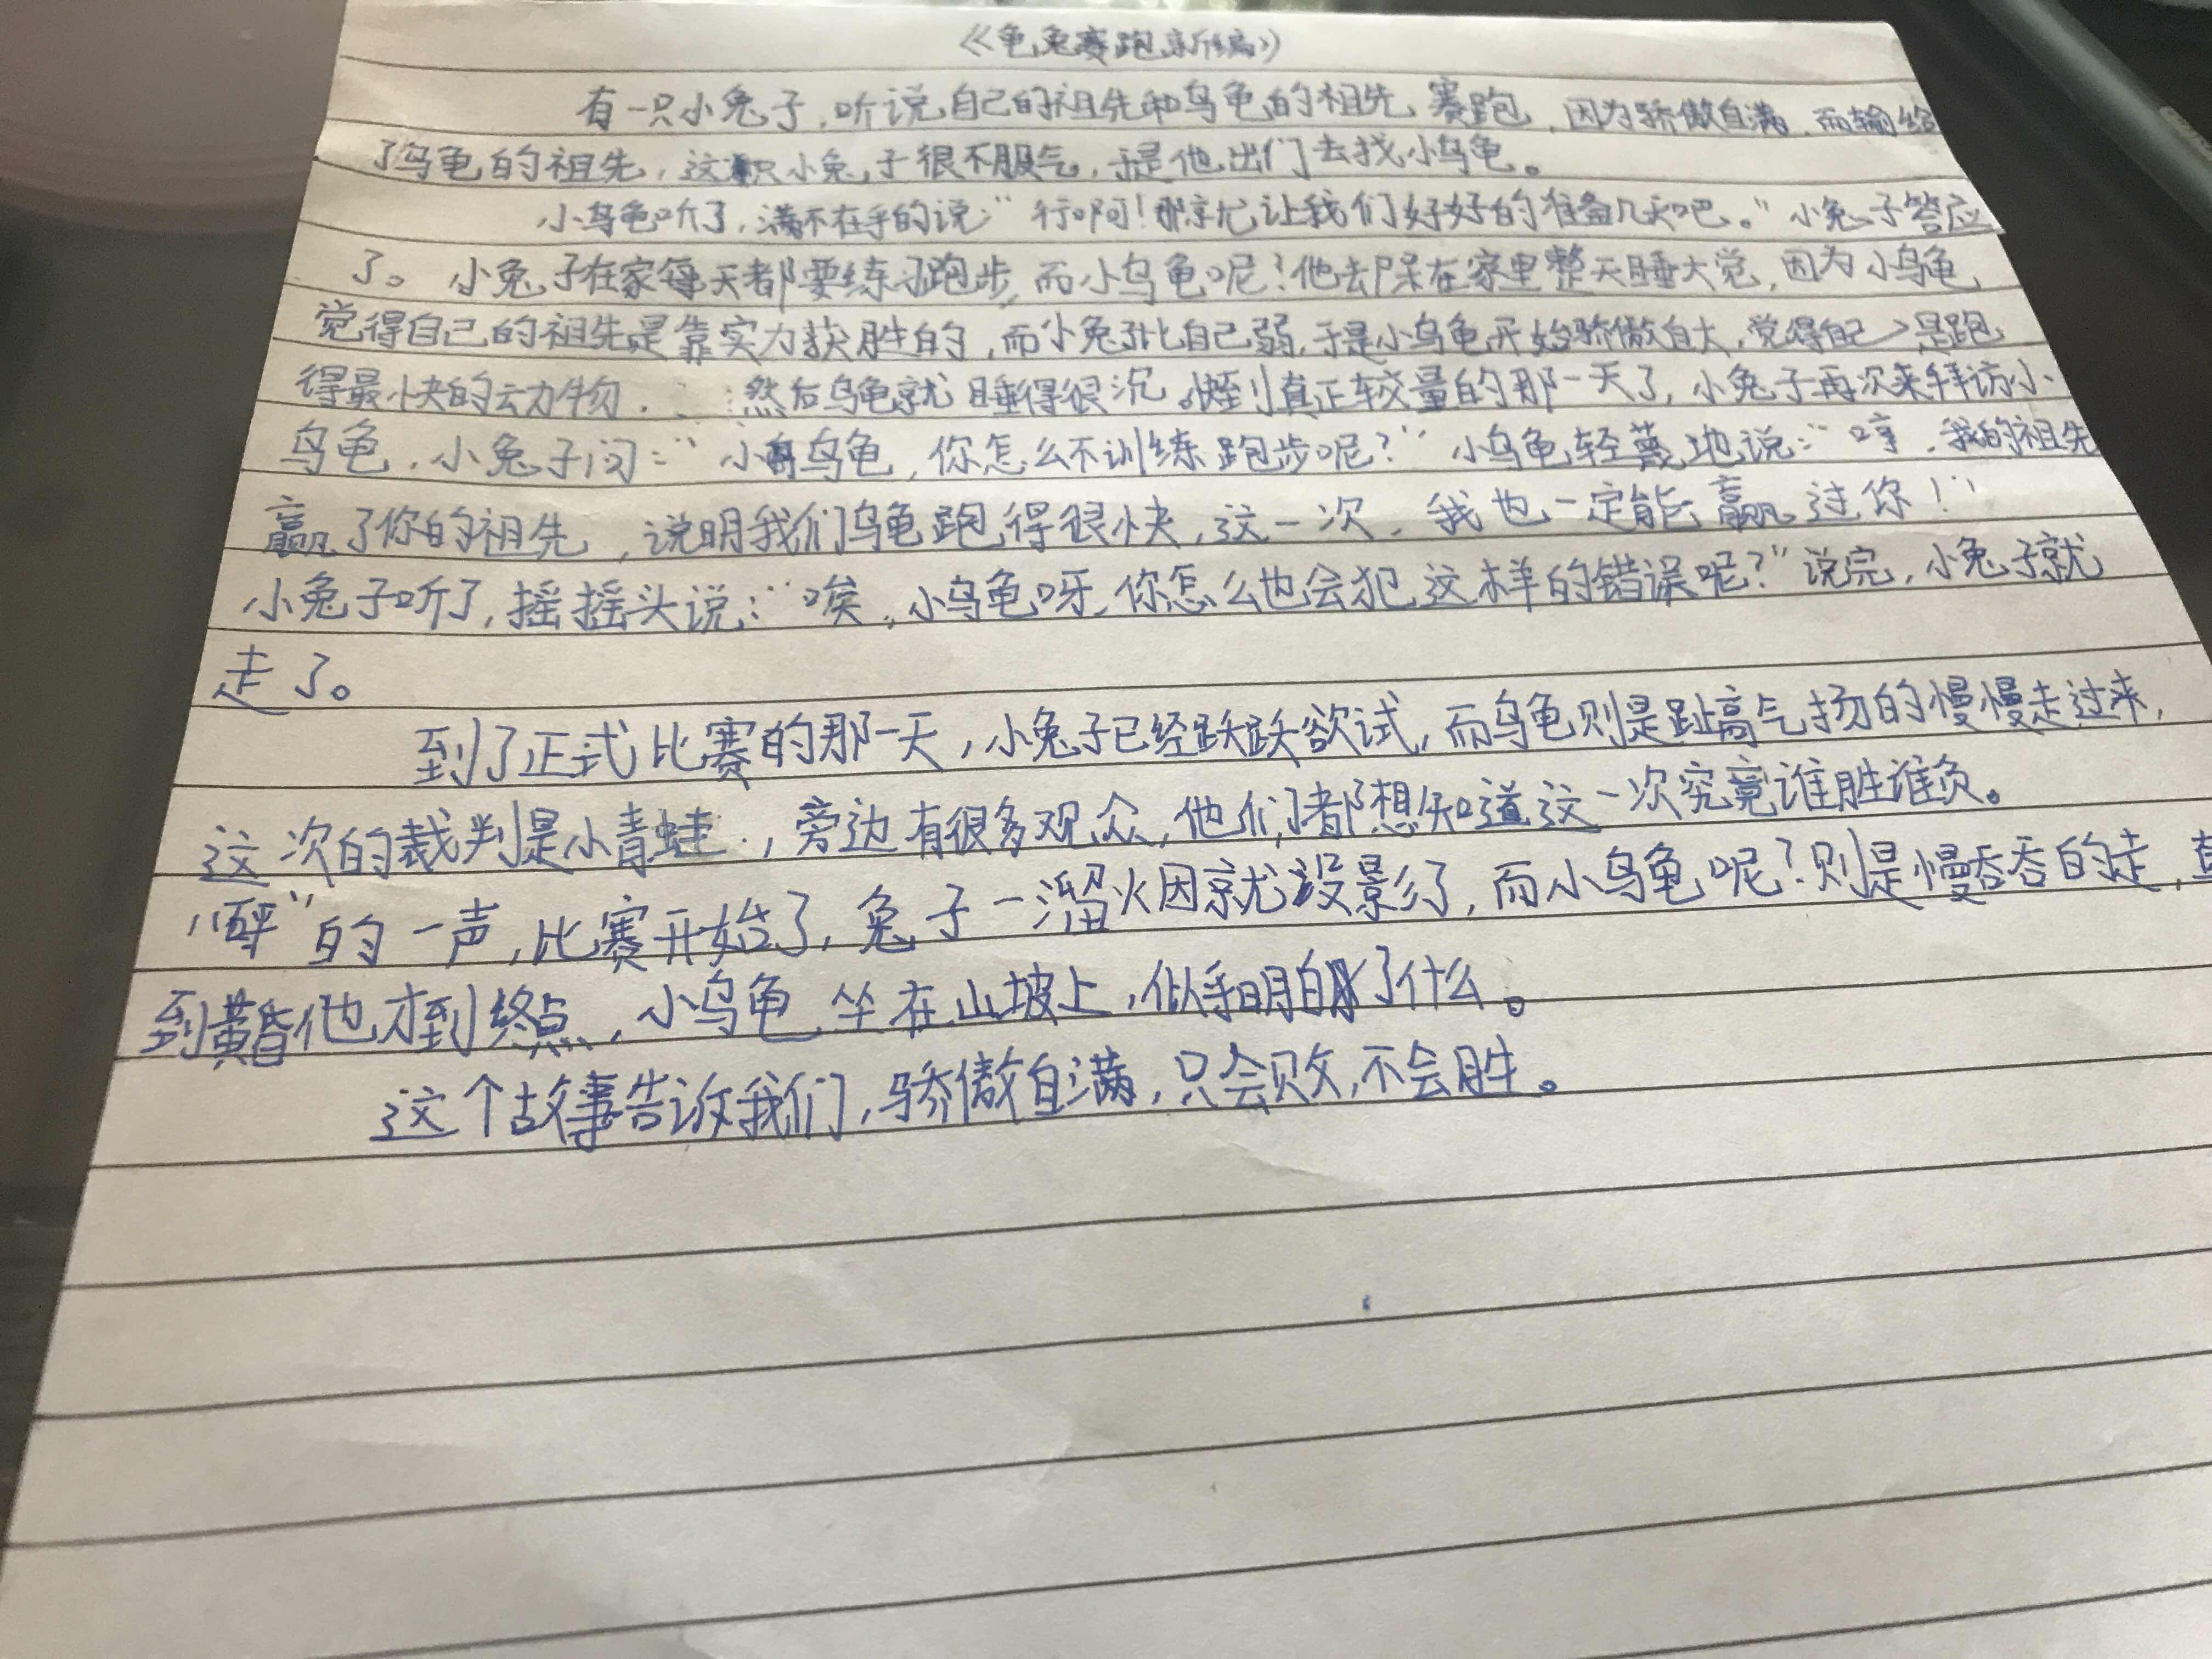 《龟兔赛跑新编》
有一只小兔子,听说自己的祖先和乌龟的祖先赛跑,因为骄傲自满,而输给
了乌龟的祖先,这只小兔子很不服气,于是他出门去找小乌龟。
小乌龟听了,满不在乎的说:“行啊!那就让我们好好的准备几天吧。”小兔子答应
了。小兔子在家每天都要练习跑步,而小乌龟呢?他却呆在家里整天睡大觉,因为小乌龟
觉得自己的祖先是靠实力获胜的,而小兔子比自己弱,于是小乌龟开始骄傲自大,觉得自己是跑
得最快的动物.然后乌龟就睡得很沉。到真正较量的那一天了,小兔子再次来拜访小
乌龟,小兔子问:“小乌龟,你怎么不训练跑步呢?”小乌龟轻蔑地说:“哼,我的祖先
赢了你的祖先,说明我们乌龟跑得很快,这一次,我也一定能赢过你!”
小兔子听了,摇摇头说:“唉,小乌龟呀,你怎么也会犯这样的错误呢?”说完,小兔子就
走了。
到了正式比赛的那一天,小兔子已经跃跃欲试,而乌龟则是趾高气扬的慢慢走过来,
这次的裁判是小青蛙,旁边有很多观众,他们都想知道这一次究竟谁胜谁负。
“砰”的一声,比赛开始了,兔子一溜烟就没影了,而小乌龟呢?则是慢吞吞的走,直
到黄昏他才到终点,小乌龟坐在山坡上,似乎明白了什么。
这个故事告诉我们,骄傲自满,只会败,不会胜。